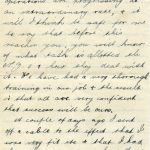 operations are progressing at
an extraordinary rate, & it
will I think be safe for me
to say that before this
reaches you, you will know
of what trick is allotted the
& how we deal with
it. We have had a very thorough
training in our job & the result
is that all are very confident
that success will be ours.
A couple of days ago I sent
off a cable to the effect that I
was very fit etc & that I had